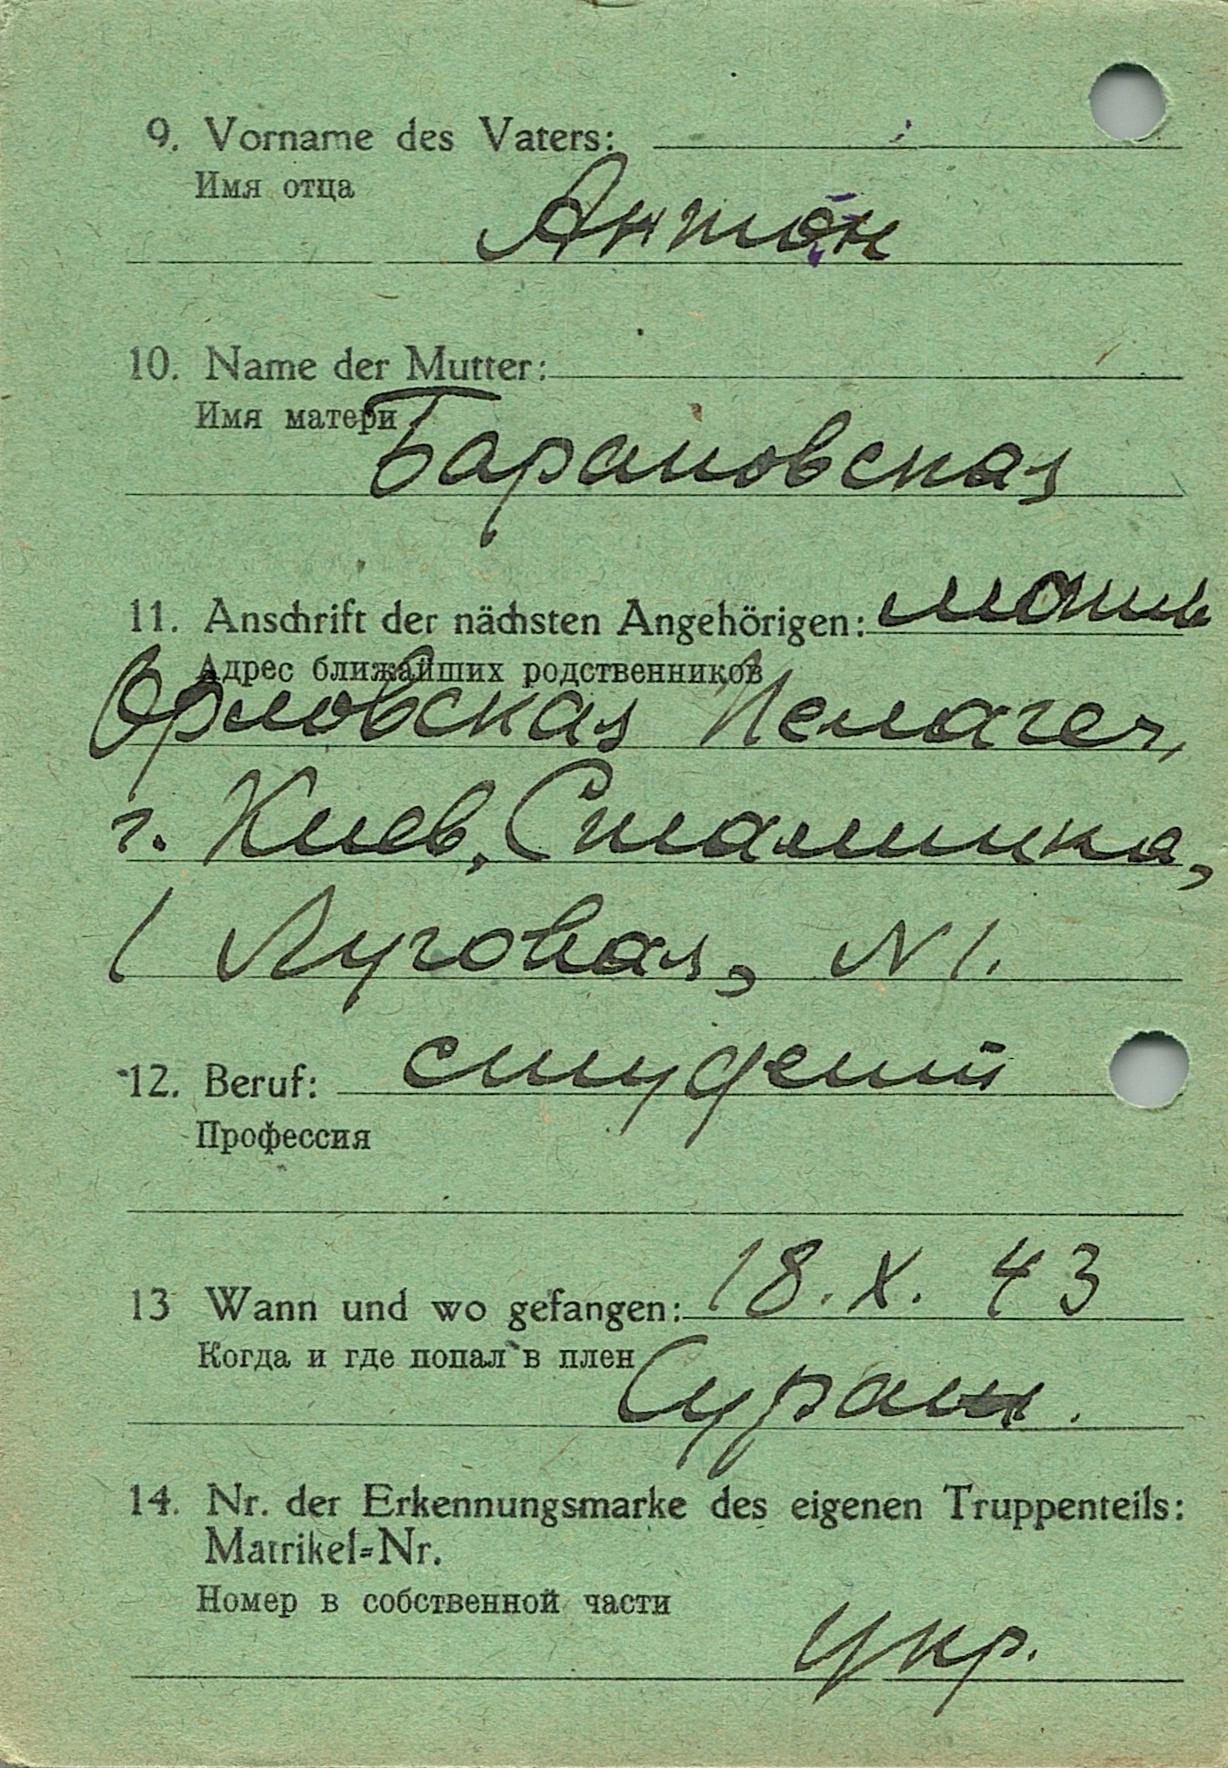 9. Vorname des Vaters:
Имя отца
Антон
10. Name der Mutter:
Имя матери
Барановская
11. Anschrift der nächsten Angehörigen: мать
Адрес ближайших родственников
Орловская Пелагея,
г. Киев, Сталинка,
1 Луговая, N 1.
12. Beruf: студент
Профессия
13 Wann und wo gefangen: 18. X. 43
Когда и где попал в плен
14. Nr. der Erkennungsmarke des eigenen Truppenteils:
Matrikel=Nr.
Номер в собственной части
укр.